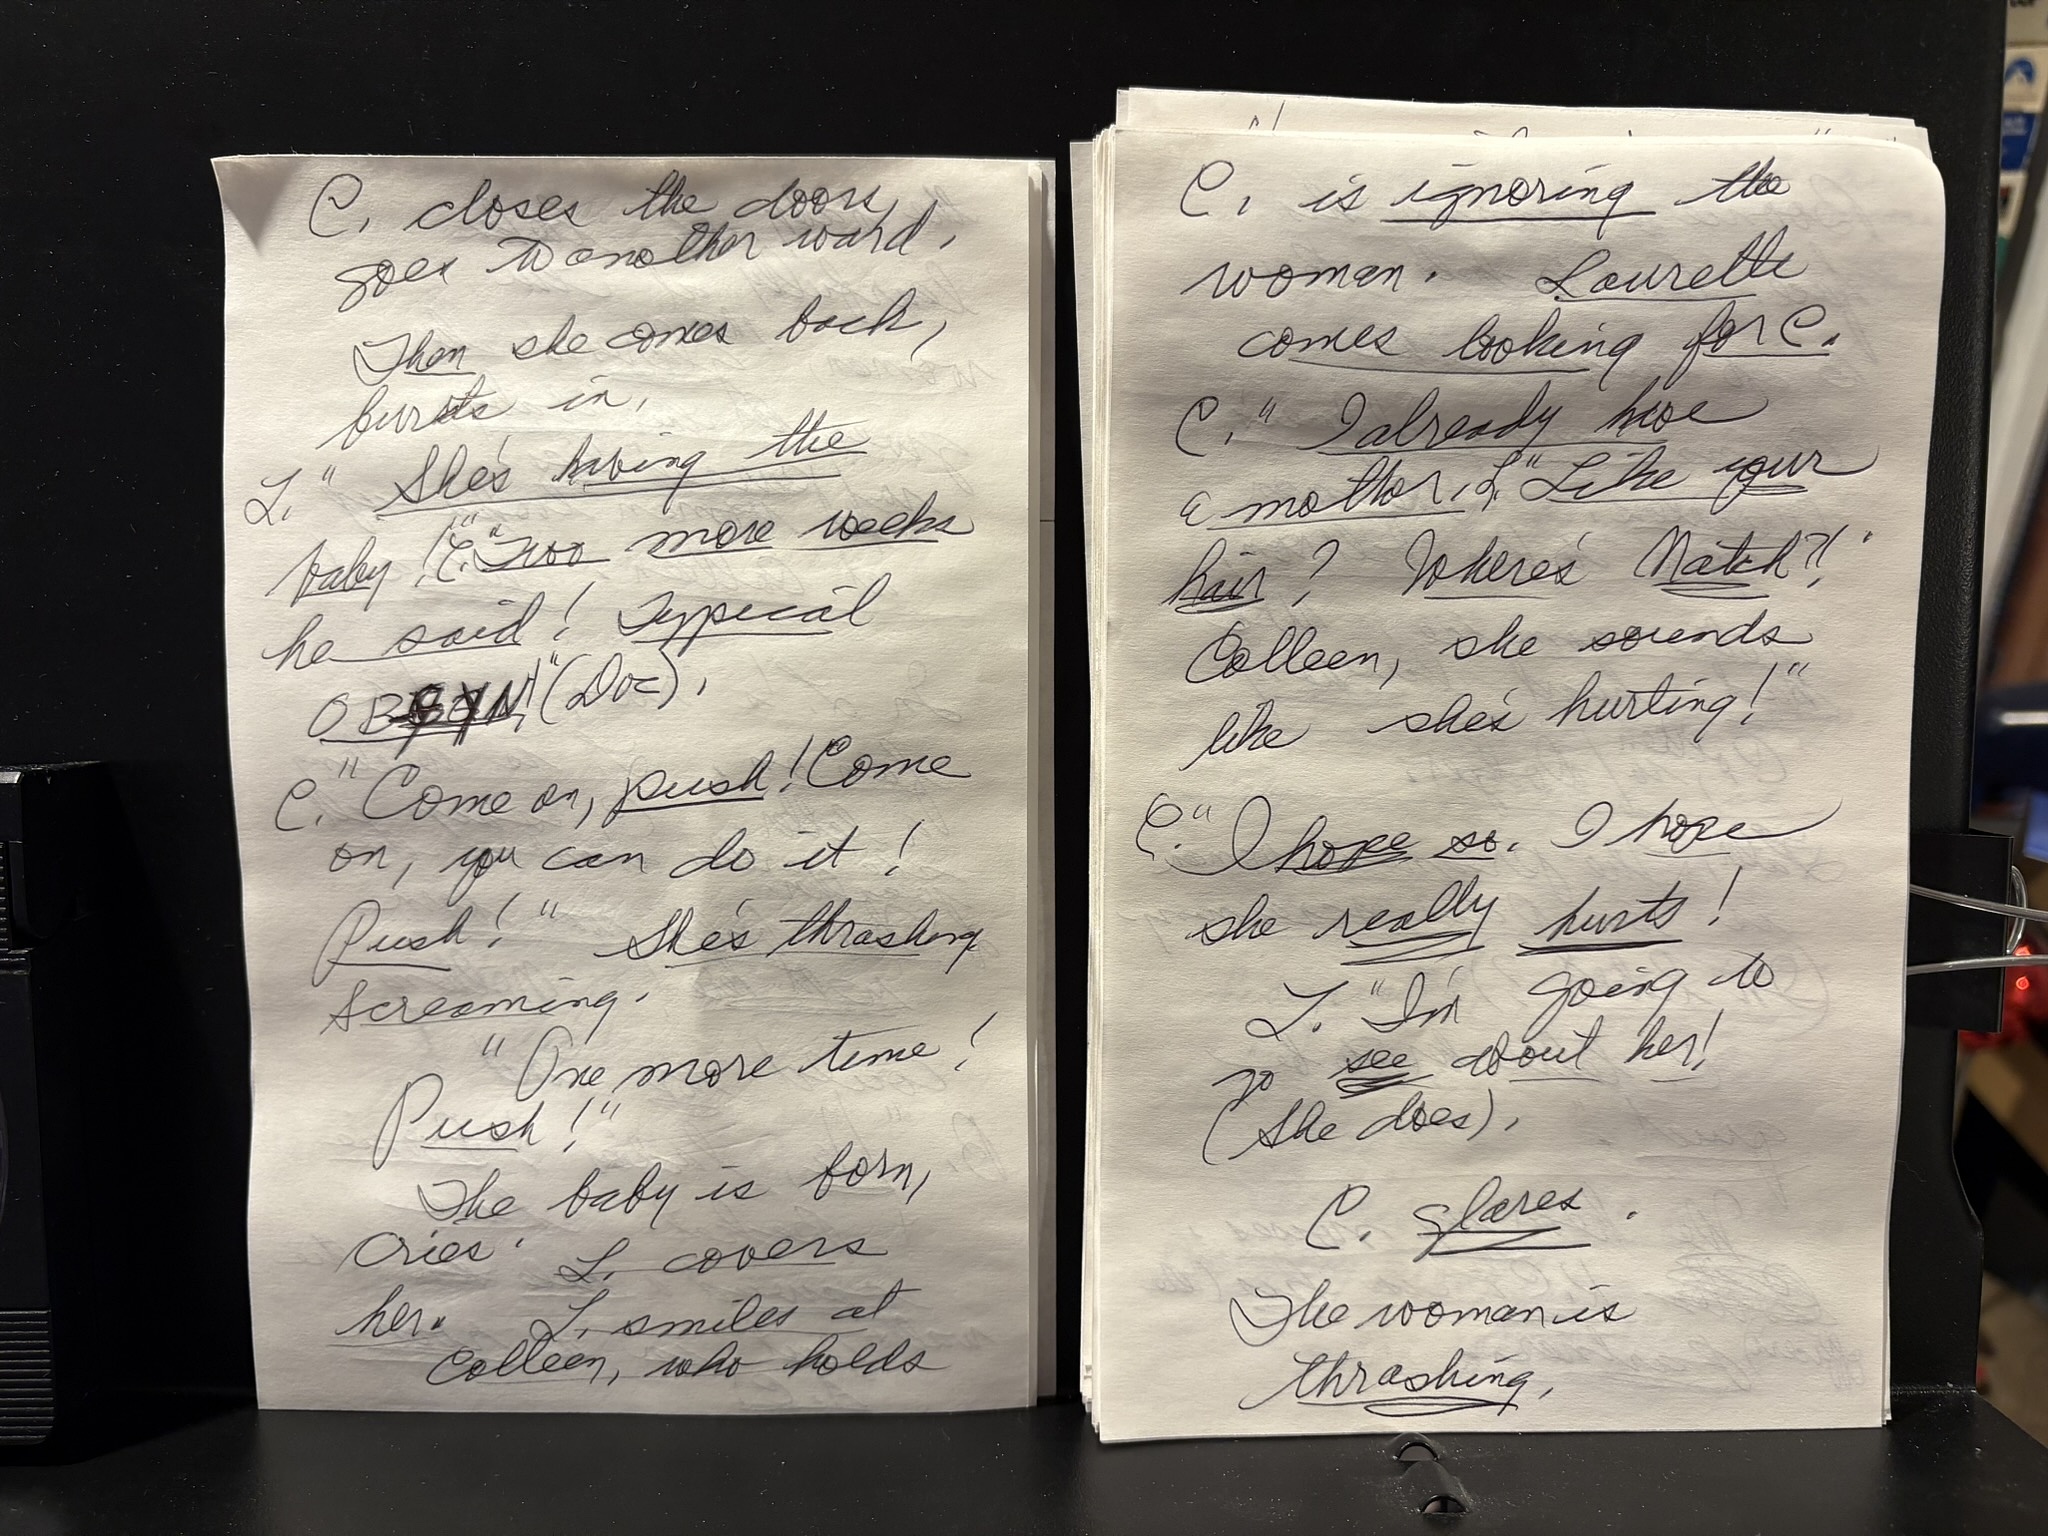 C. closes the doors,
goes to another ward.
Then she comes back,
bursts in.
L. " She's having the
baby!" C. "Two more weeks
he said! Typical
OBGYN!" (Doc).
C. "Come on, push! Come
on, you can do it!
Push!" She's thrashing
screaming.
"One more time!
Push!"
The baby is born,
cries. L. covers
her. L. smiles at
Colleen, who holds
C. is ignoring the
woman. Laurette
comes looking for C.
C. " I already have
a mother. L. "Like your
hair? Where's Natch?!
Colleen, she sounds
like she's hurting!"
C. "I hope so. I hope
she really hurts!
L. "I'm going to
go see about her!
(She does).
C. glares.
The woman is
thrashing.